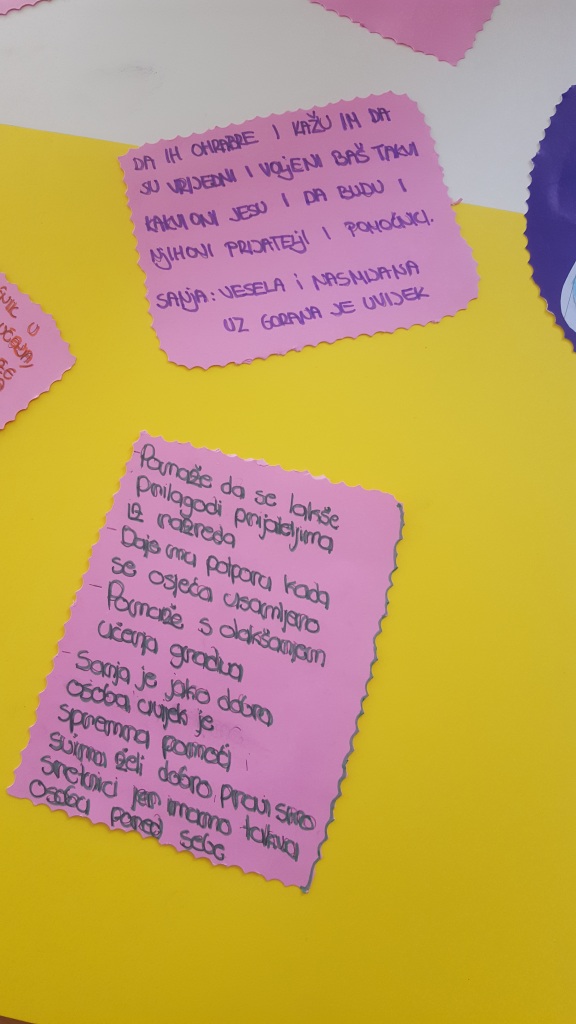 DA IH OHRABRE I KAŽU IM DA
SU VRIJEDNI I VOLJENI BAŠ TAKVI
KAKVI ONI JESU I DA BUDU I
NJIHOVI PRIJATELJI I POMOĆNICI.
SANJA: VESELA i NASMIJANA
UZ GORANA JE UVIJEK
-Pomaže da se lakše
prilagodi prijateljima
iz razreda
- Daje mu potporu kada
se osjeća usamljeno
- Pomaže s olakšanjem
učenja gradiva
- Sanja je jako dobra
osoba, uvijek je
spremna pomoći i
svima želi dobro. Pravi smo
sretnici jer imamo takvu
osobu pored sebe